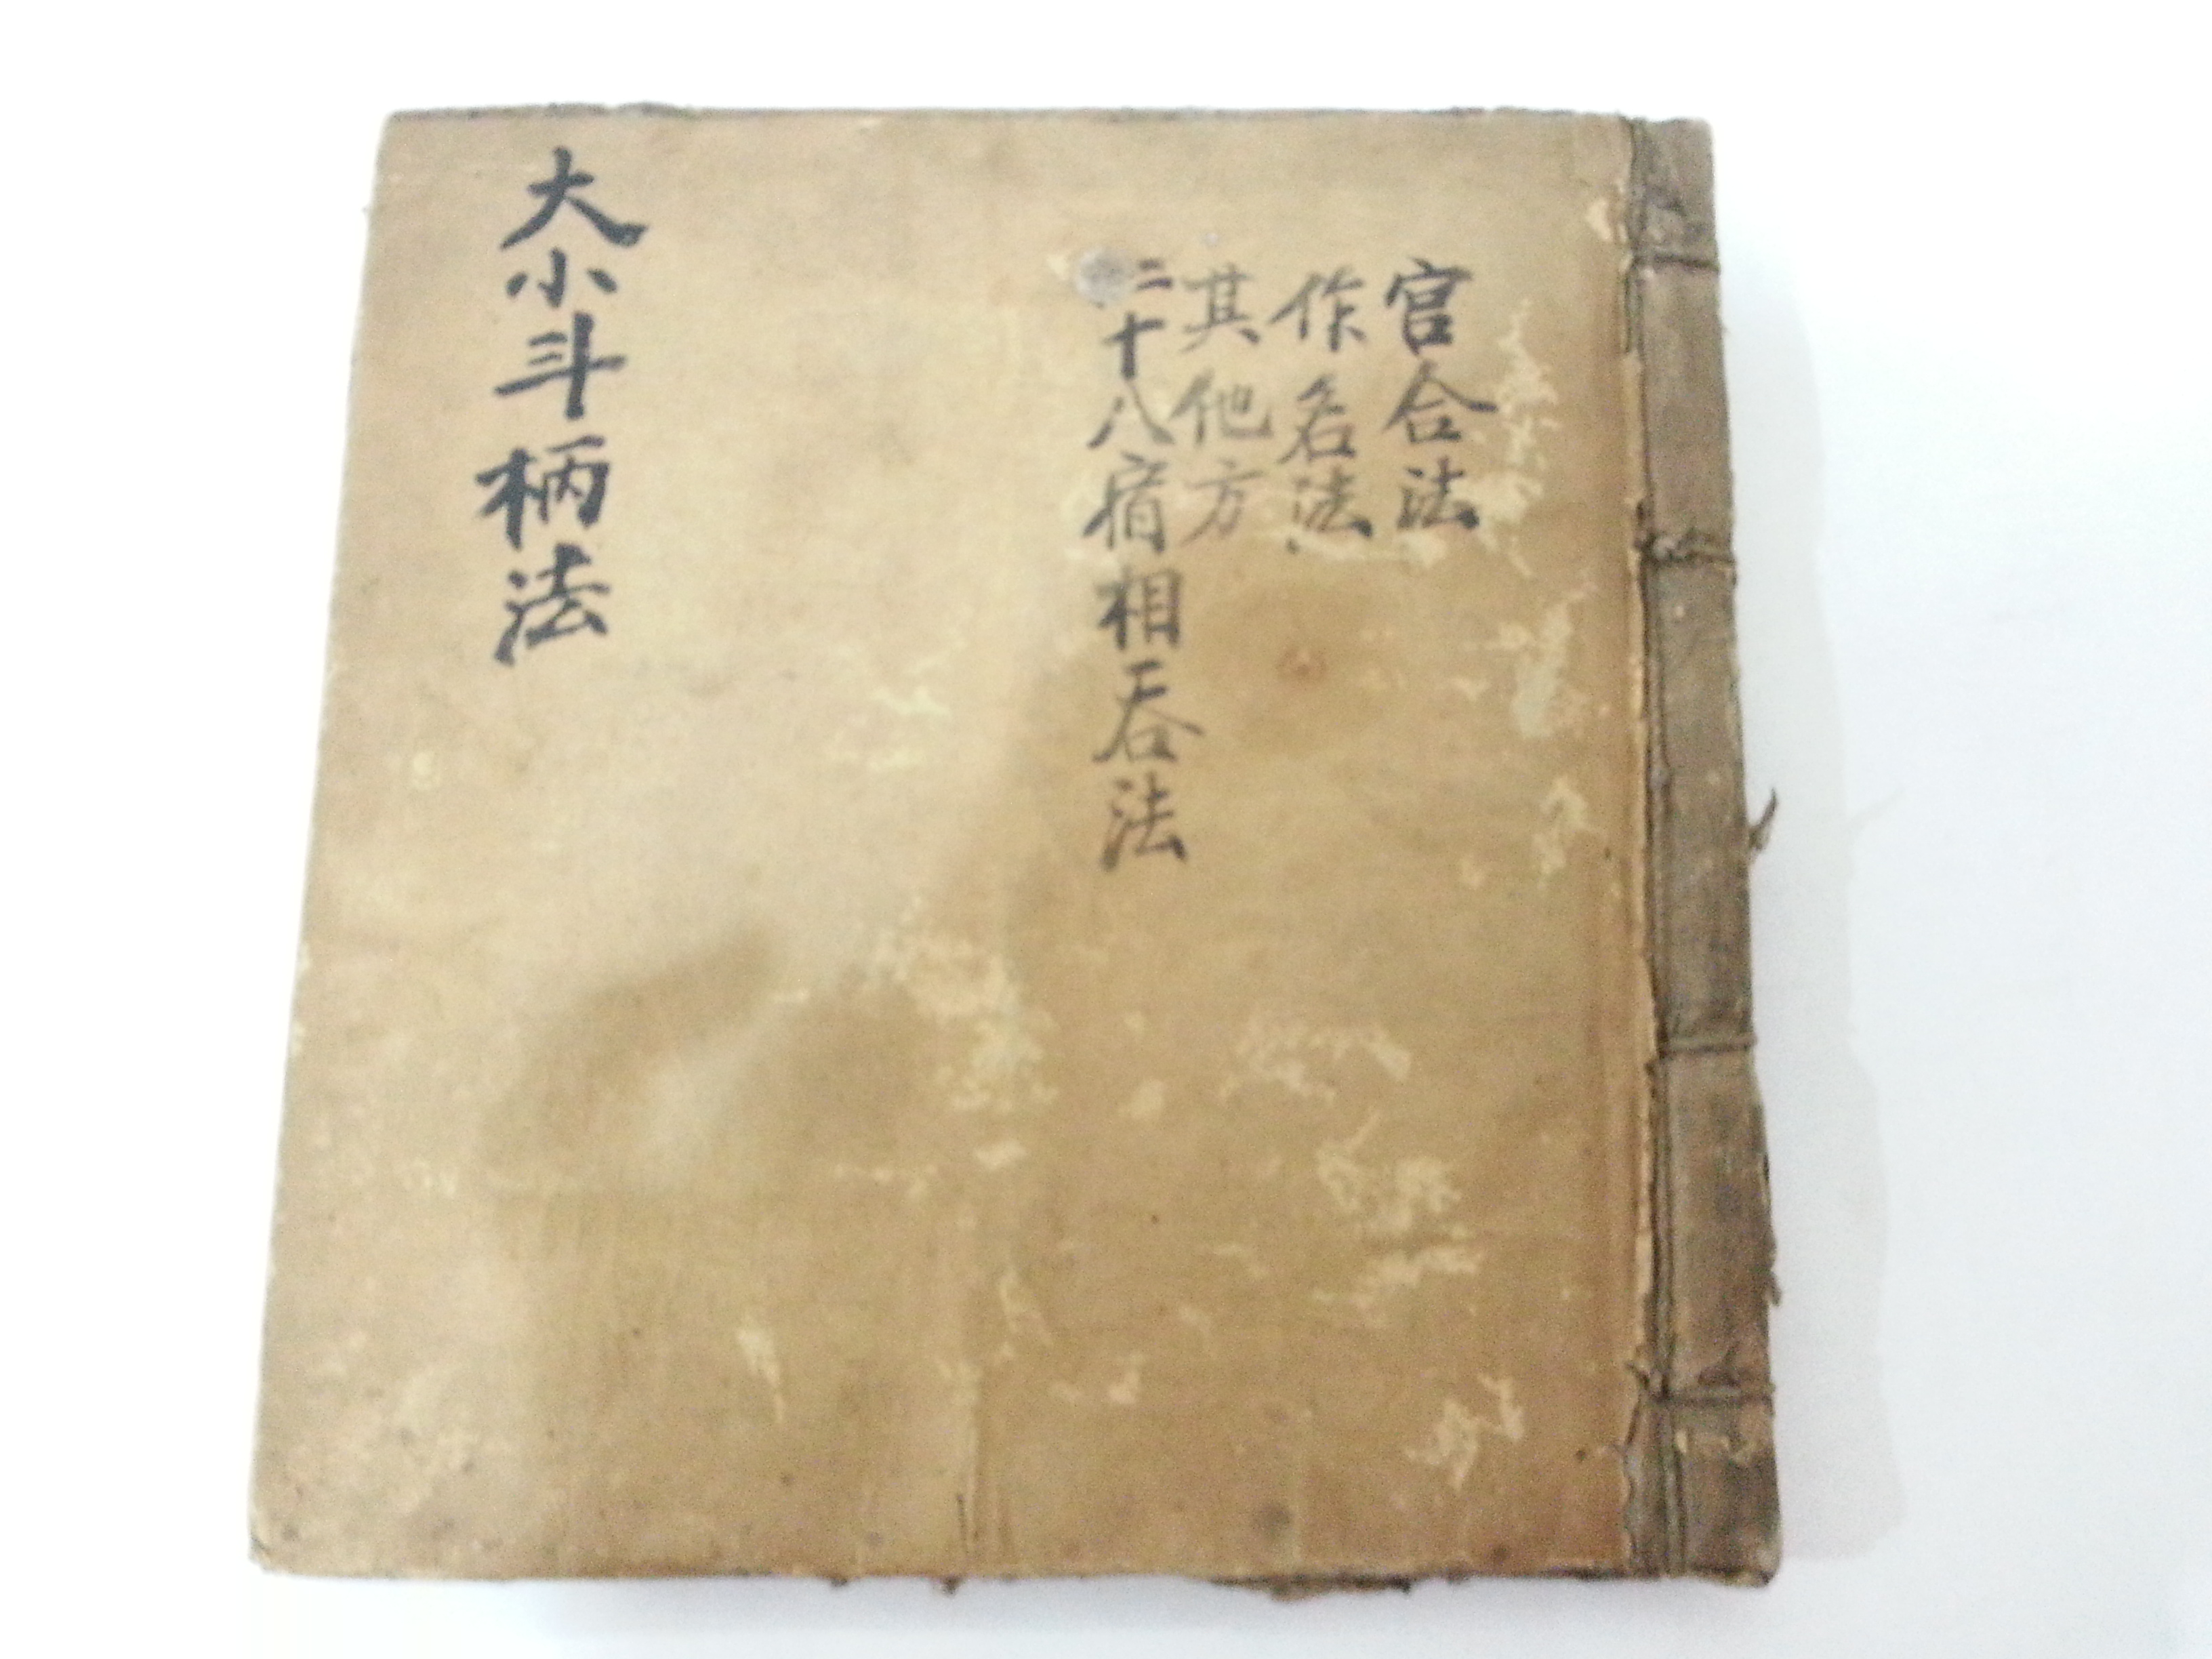 官合法
作名法
其他方
二十八宿相吞法
大小斗柄法